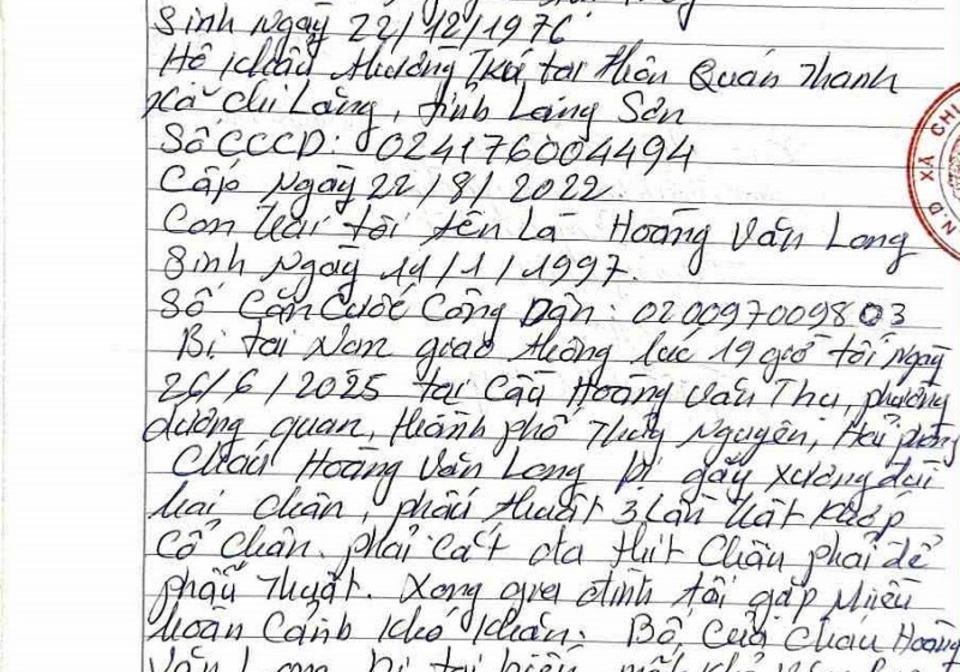 Sinh ngày 22/12/1976
Hộ khẩu thường trú tại thôn Quán Thanh
xã Chi Lăng, tỉnh Lạng Sơn
Số CCCD: 024176004494
Cấp ngày 22/8/2022.
Con trai tôi tên là Hoàng Văn Long
Sinh ngày 14/1/1997.
Số Căn Cước Công Dân: 020097009803
Bị tai nạn giao thông lúc 19 giờ tối ngày
26/6/2025 tại Cầu Hoàng Văn Thụ, phường
dương quan, thành phố Thuỷ Nguyên, Hải phòng
Cháu Hoàng Văn Long bị gãy xương đùi
hai chân, phẫu thuật 3 lần trật khớp
cổ chân. phải cắt da thịt chân phải để
phẫu thuật. Xong gia đình tôi gặp nhiều
hoàn cảnh khó khăn. Bố của cháu Hoàng
Văn Long bị tai biến
N.D XÃ CHI